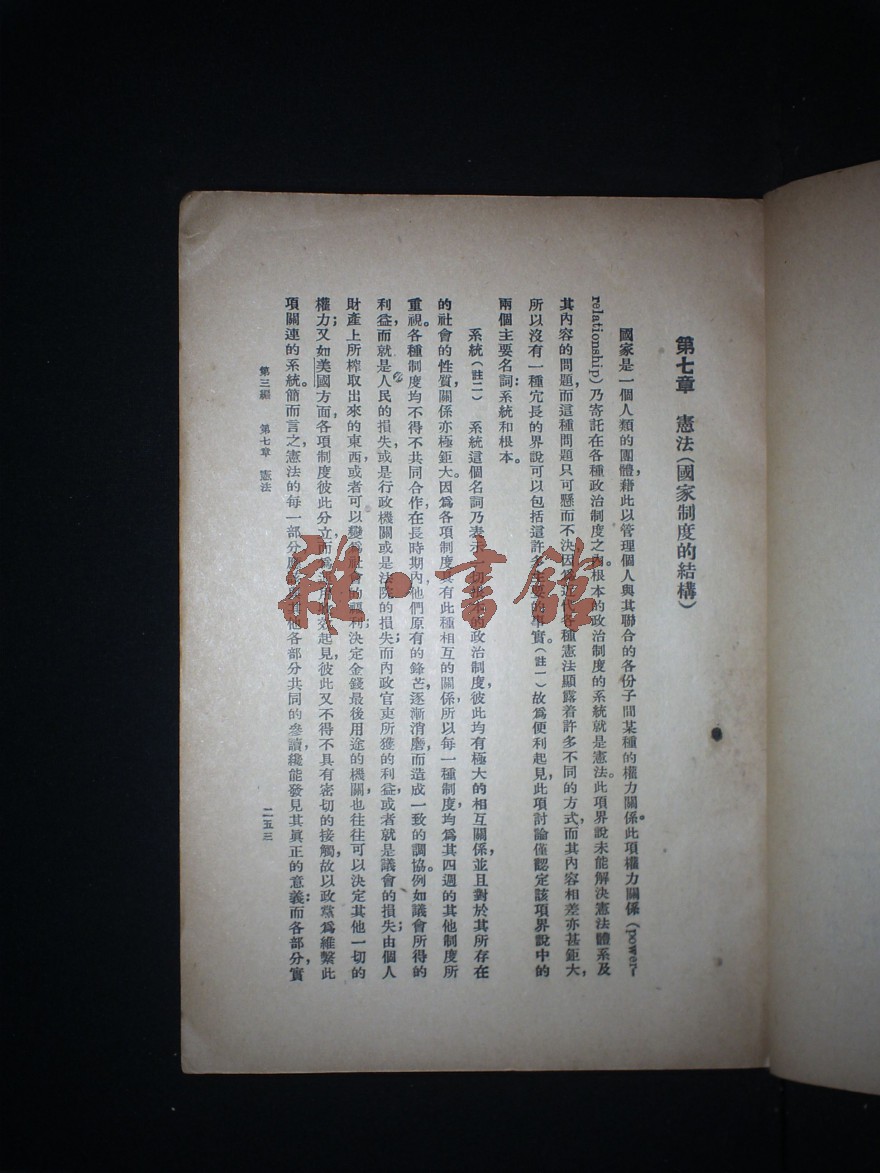 第七章　憲法（國家制度的結構）
國家是一個人類的團體，藉此以管理個人與其聯合的各份子間某種的權力關係。此項權力關係（power-
relationship）乃寄託在各種政治制度之內。根本的政治制度的系統就是憲法。此項界說未能解決憲法體系及
其內容的問題，而這種問題只可懸而不決，因為近代各種憲法顯露着許多不同的方式，而其內容相差亦甚鉅大，
所以沒有一種冗長的界說可以包括這許多主要的事實。（註一）故為便利起見，此項討論僅認定該項界說中的
兩個主要名詞：系統和根本。
系統（註二）　系統這個名詞乃表示一切根本的政治制度，彼此均有極大的相互關係，並且對於其所存在
的社會的性質，關係亦極鉅大。因為各項制度具有此種相互的關係，所以每一種制度，均為其四週的其他制度所
重視。各種制度均不得不共同合作，在長時期內，他們原有的鋒芒逐漸消磨，而造成一致的調協。例如議會所得的
利益，而就是人民的損失，或是行政機關或是法院的損失；而內政官吏所獲的利益，或者就是議會的損失；由個人
財產上所榨取出來的東西，或者可以變為社會的福利；決定金錢最後用途的機關，也往往可以決定其他一切的
權力；又如美國方面，各項制度彼此分立，而為起見，彼此又不得不具有密切的接觸，故以政黨為維繫此
項關連的系統。簡而言之，憲法的每一部分應與其他各部分共同的參讀，纔能發見其眞正的意義；而各部分，實
第三編　第七章　憲法
二五三
雜·書館